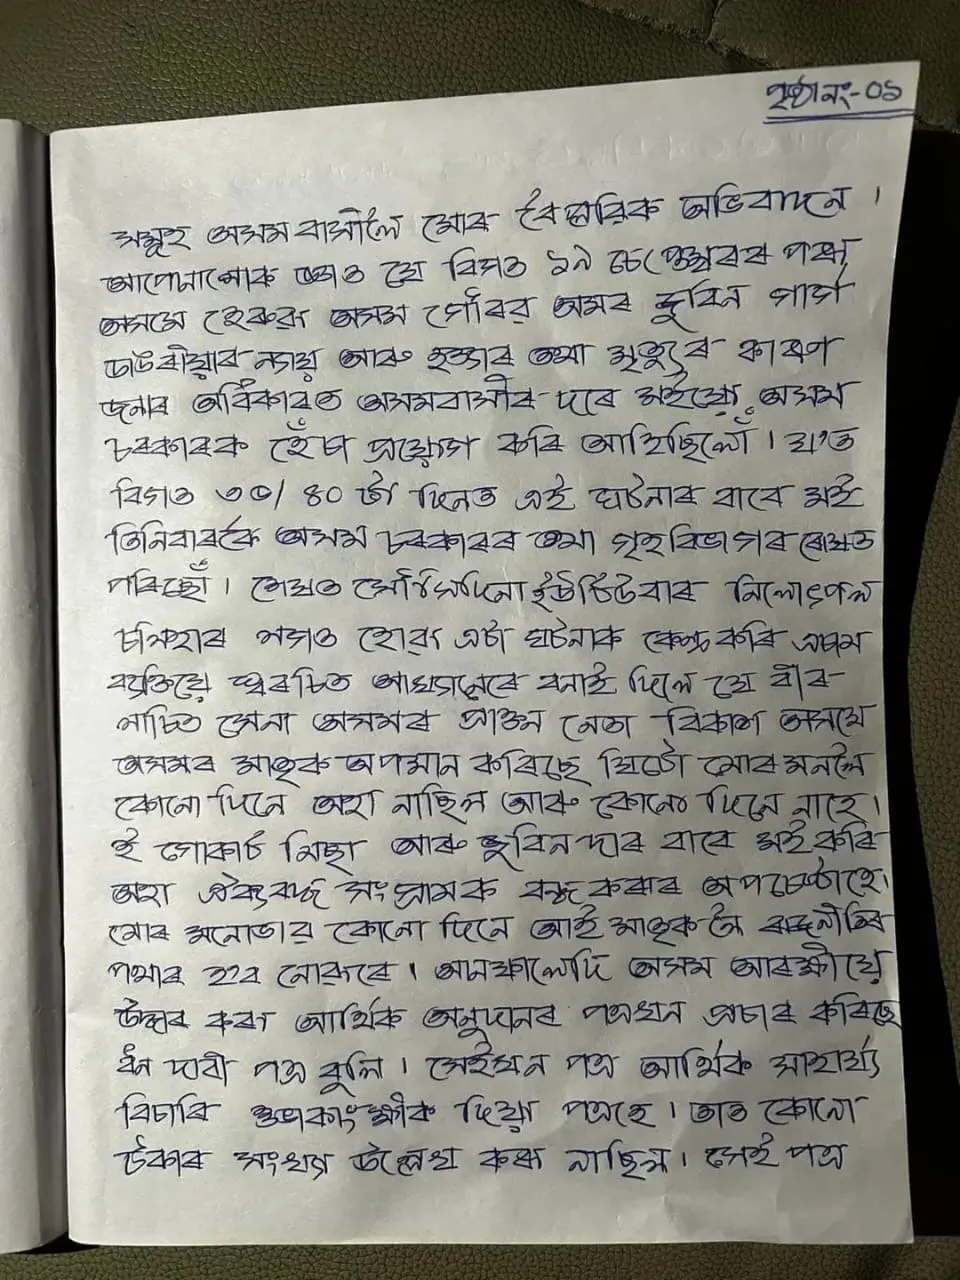 পৃষ্ঠা নং-০১
সমূহ অসমবাসীলৈ মোৰ বৈপ্লৱিক অভিবাদন ।
আপোনালোক জ্ঞাত যে বিগত ১৯ চেপ্তেম্বৰৰ পৰা
অসমে হেৰুৱা অসম গৌৰৱ অমৰ জুবিন গাৰ্গ
ডাঙৰীয়াৰ ন্যায় আৰু হত্যাৰ তথা মৃত্যুৰ কাৰণ
জনাৰ অধিকাৰত অসমবাসীৰ দৰে ময়ো অসম
চৰকাৰক হেঁচা প্ৰয়োগ কৰি আহিছিলোঁ । য'ত
বিগত ৩০/ ৪০ টা দিনত এই ঘটনাৰ বাবে মই
তিনিবাৰকৈ অসম চৰকাৰৰ তথা গৃহ বিভাগৰ ৰোষত
পৰিছোঁ । তেখত ইউটিউবাৰ
লগত হোৱা এটা ঘটনাক কেন্দ্ৰ কৰি এজন
ব্যক্তিয়ে স্বৰচিত আখ্যানেৰে বনাই দিলে যে বীৰ
লাচিত সেনা অসমৰ প্ৰাক্তন নেতা বিকাশ অসমে
অসমৰ মাতৃক অপমান কৰিছে যিটো মোৰ মনলৈ
কোনো দিনে অহা নাছিল আৰু কোনো দিনে নাহে ।
ই মিছা আৰু জুবিন দাৰ বাবে মই কৰি
অহা ঐক্যবদ্ধ সংগ্ৰামক বন্ধ কৰাৰ অপচেষ্টাহে ।
মোৰ মনোভাৱ কোনো দিনে আই মাতৃক লৈ ৰাজনীতিৰ
পথাৰ হ'ব নোৱাৰে । আনহাতেদি অসম আৰক্ষীয়ে
উদ্ধাৰ কৰা আৰ্থিক অনুদানৰ পত্ৰখন প্ৰচাৰ কৰিছে
ধন দাবী পত্ৰ বুলি । সেইখন পত্ৰ আৰ্থিক সাহাৰ্য্য
বিচাৰি শুভকাংক্ষীক দিয়া পত্ৰহে । তাত কোনো
টকাৰ সংখ্যা উল্লেখ কৰা নাছিল । সেই পত্ৰ